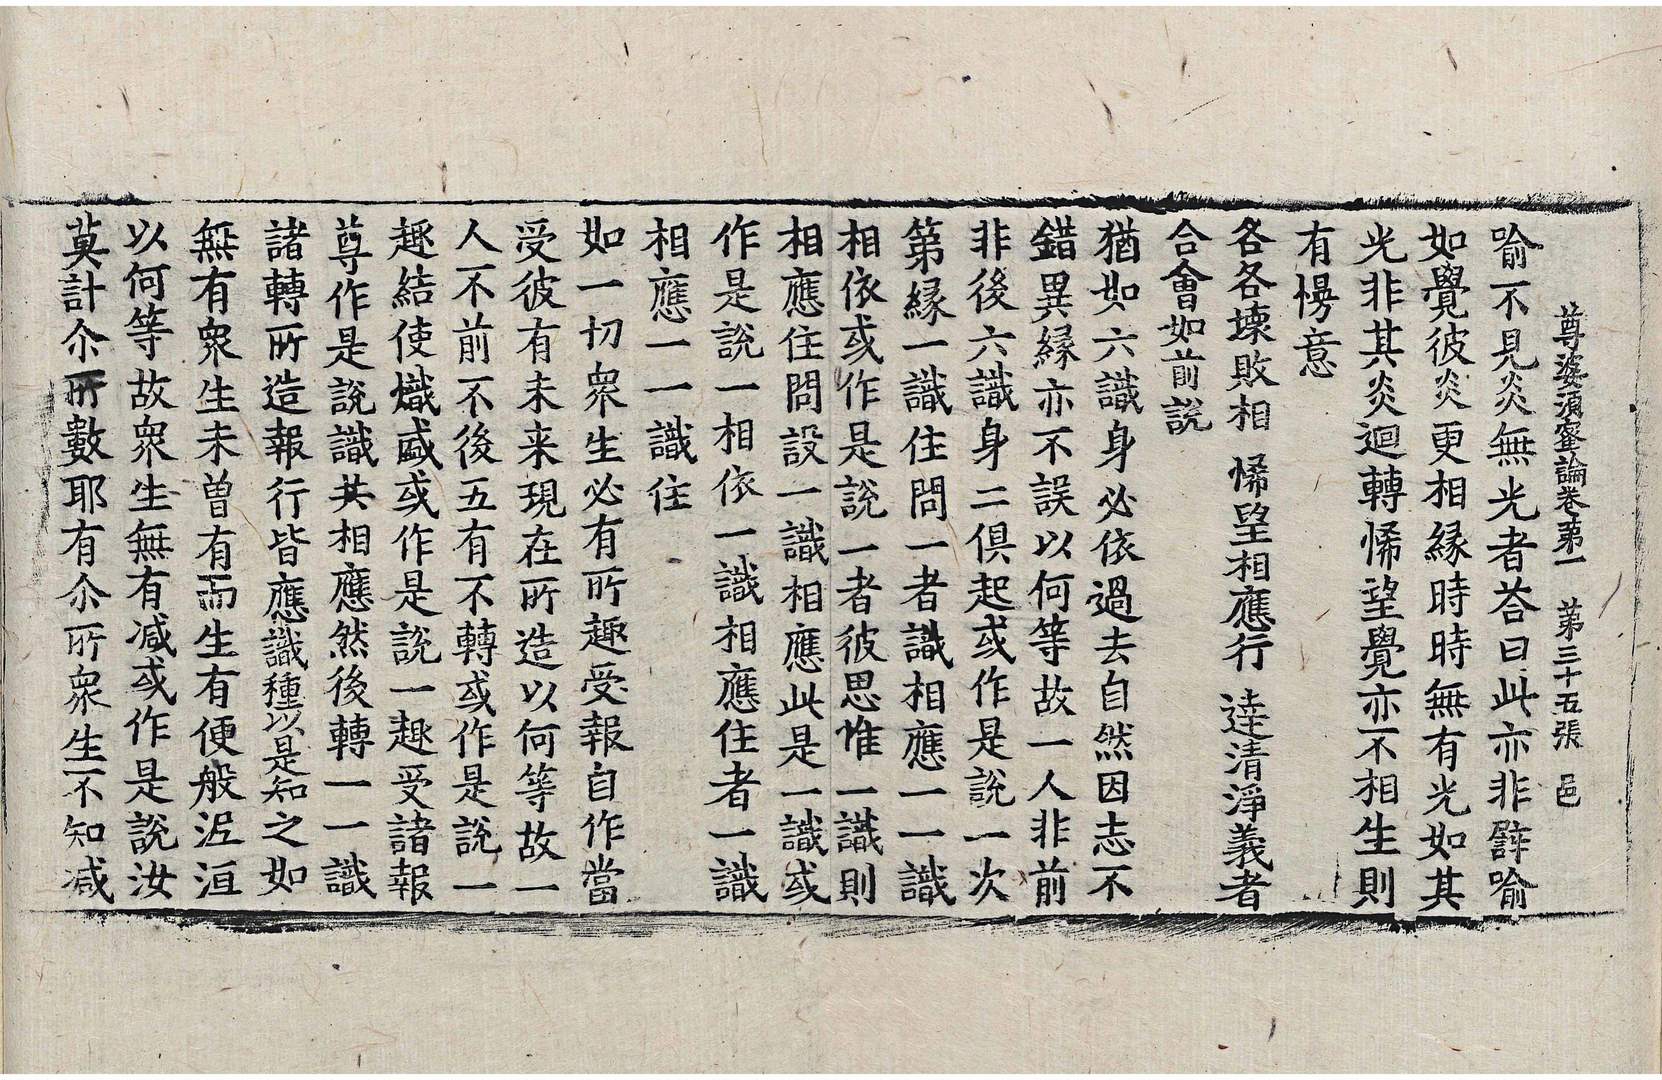 尊婆須蜜論卷第一　第三十五張　邑
喻不見炎無光者荅曰此亦非譬喻
如覺彼炎更相緣時時無有光如其
光非其炎迴轉悕望覺亦不相生則
有愓意
各各壞敗相　悕望相應行　逹清淨義者
合會如前說
猶如六識身必依過去自然因志不
錯異緣亦不誤以何等故一人非前
非後六識身二俱起或作是說一次
第緣一識住問一者識相應一一識
相依或作是說一者彼思惟一識則
相應住問設一識相應此是一識或
作是說一相依一識相應住者一識
相應一一識住
如一切衆生必有所趣受報自作當
受彼有未来現在所造以何等故一
人不前不後五有不轉或作是說一
趣結使熾盛或作是說一趣受諸報
尊作是說識共相應然後轉一一識
諸轉所造報行皆應識種以是知之如
無有衆生未曾有而生有便般泥洹
以何等故衆生無有减或作是說汝
莫計尒所數耶有尒所衆生不知减